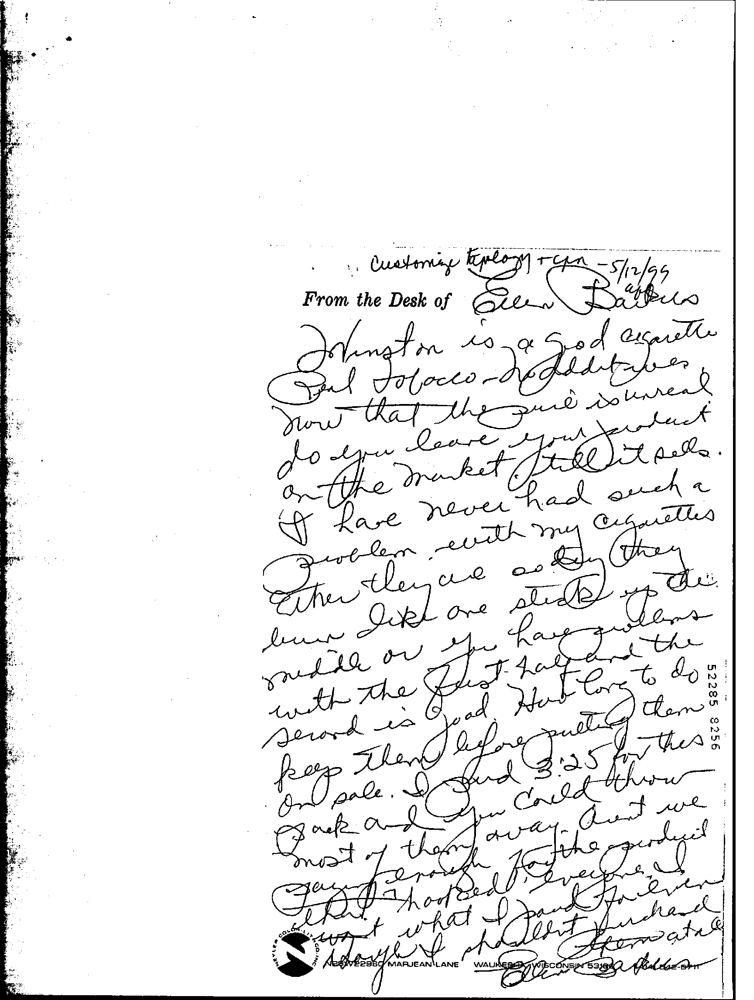 Customize apology + cpn - 5/12/99
From the Desk of Ellen Baikus
Winston is a good cigarette
Real Tobacco - No Additives
now that the price is unreal
do you leave your product
on the market till it sells.
I have never had such a
problem with my cigarettes
Either they are so dry they
burn like one stick up the
middle or you have problems
with the first half and the
second is good. How long to do
keep them before putting them
on sale. I paid 3.25 for this
pack and you could throw
most of them away. Arent we
paying enough for the product
that hooked everyone. I
want what I paid for even
I shouldn't purchased
them at all
MARJEAN LANE WAUKESHA, WISCONSIN
Ellen
52285 8256